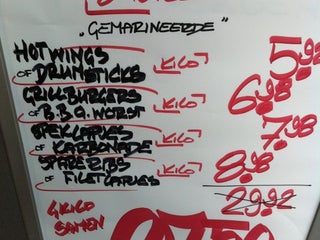 „GEMARINEERDE"
HOTWINGS
OF DRUMSTICKS KILO 5.98
GRILLBURGERS
OF B.B.Q. WORST KILO 6.98
SPEKLAPJES
OF KARBONADE KILO 7.98
SPARERIBS
OF FILETLAPJES KILO 8.98
29.92
4 KILO
SAMEN